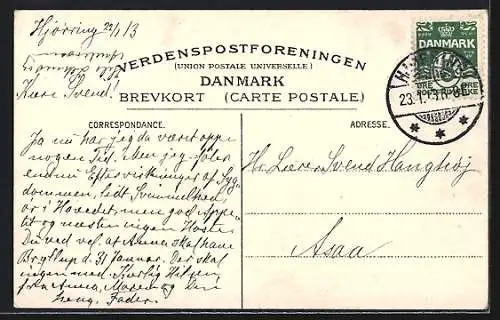 Hjørring 22/1 13
Kære Svend!
VERDENSPOSTFORENINGEN
(UNION POSTALE UNIVERSELLE)
DANMARK
BREVKORT (CARTE POSTALE)
DANMARK
23.1.13
CORRESPONDANCE.
ADRESSE.
Ja nu har jeg da været oppe
nogen Tid. Men jeg føler
endnu Eftervirkninger af Syg
dommen, lidt Svimmelhed,
ør i Hovedet, men god Appe-
tit og næsten ingen Hoste.
Du ved vel at Anna skal have
Bryllup d. 31 Januar. Der skal
ingen med. Kærlig Hilsen
fra Anna, Maren og Din
heng. Fader.
Hr. Lærer Svend Haughøj
Asaa